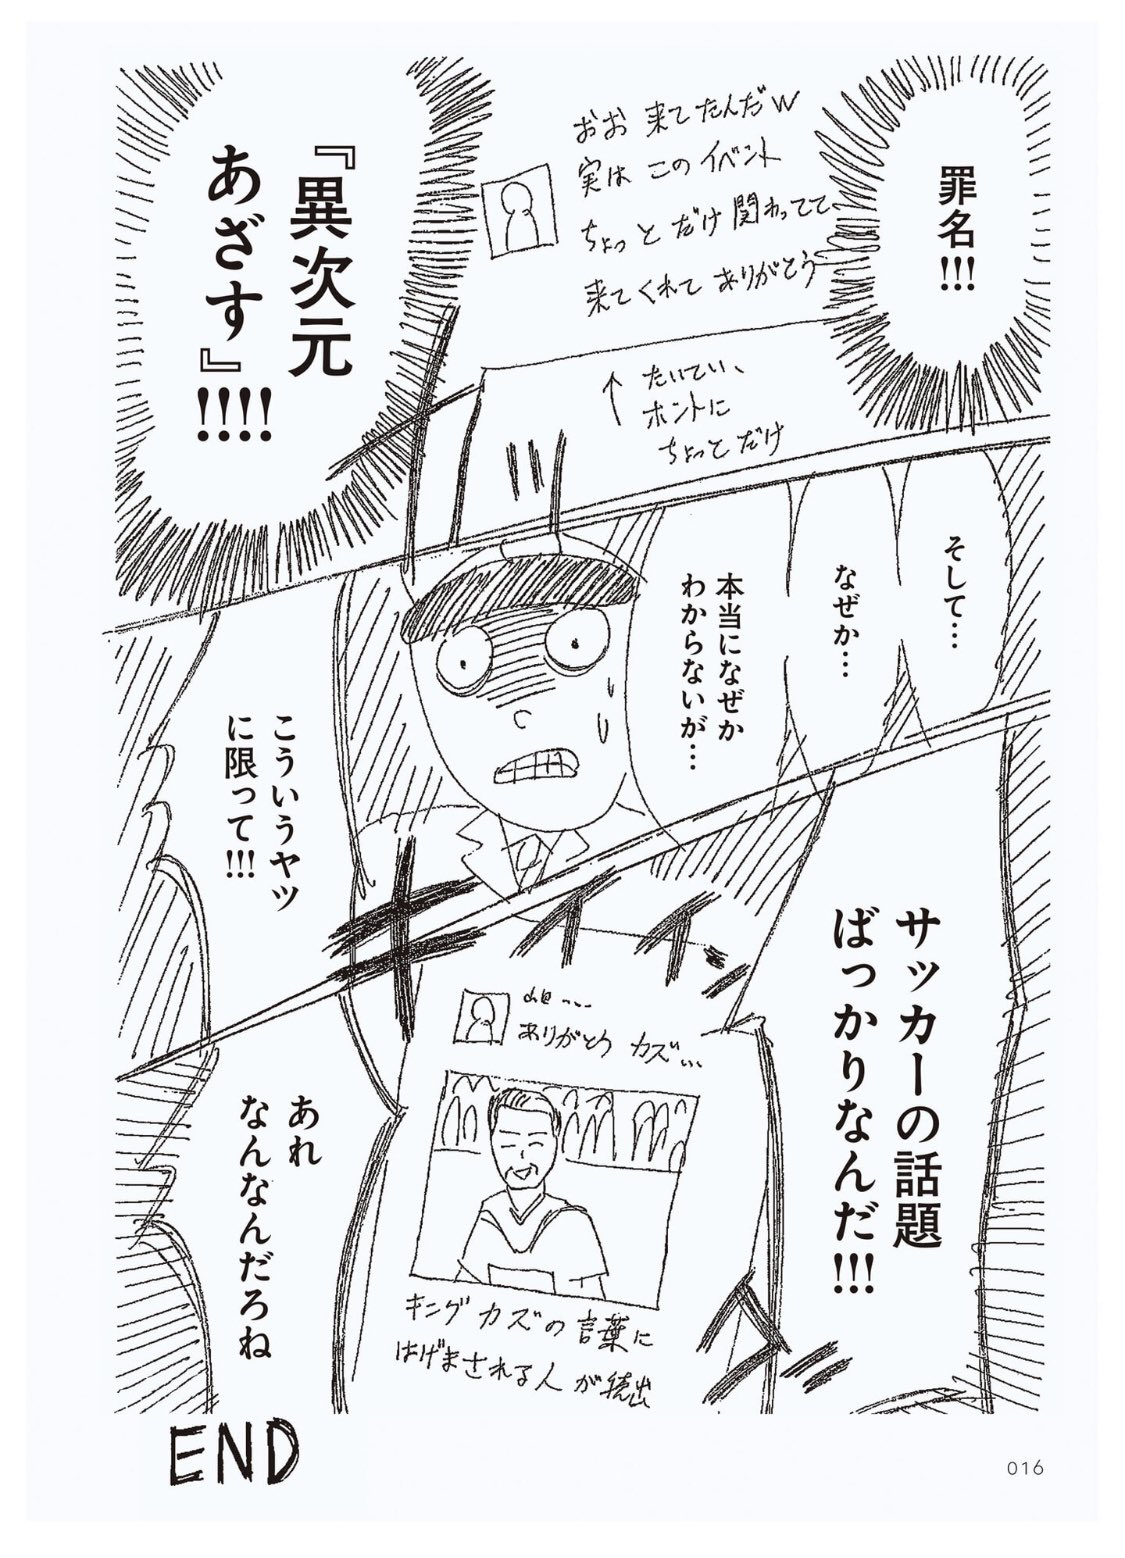 罪名!!!
おお 来てたんだw
実は このイベント
ちょっとだけ関わってて
来てくれて ありがとう
↑たいてい、
ホントに
ちょっとだけ
『異次元
あざす』
!!!!
そして…
なぜか…
本当になぜか
わからないが…
こういうヤツ
に限って!!!
サッカーの話題
ばっかりなんだ!!!
キイイン
ありがとう カズ…
キング カズの言葉に
はげまされる人が続出
あれ
なんなんだろね
END
016